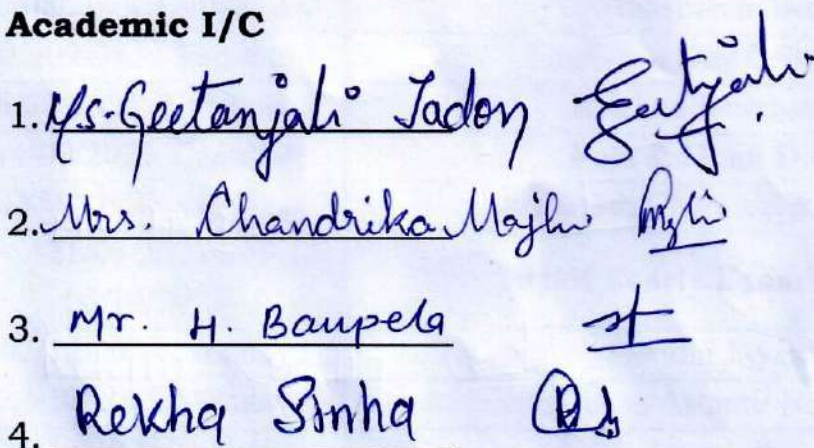 Academic I/C
1. Ms. Geetanjali Jadon Geetanjali
2. Mrs. Chandrika Majhi
3. Mr. H. Baupela
4. Rekha Sinha